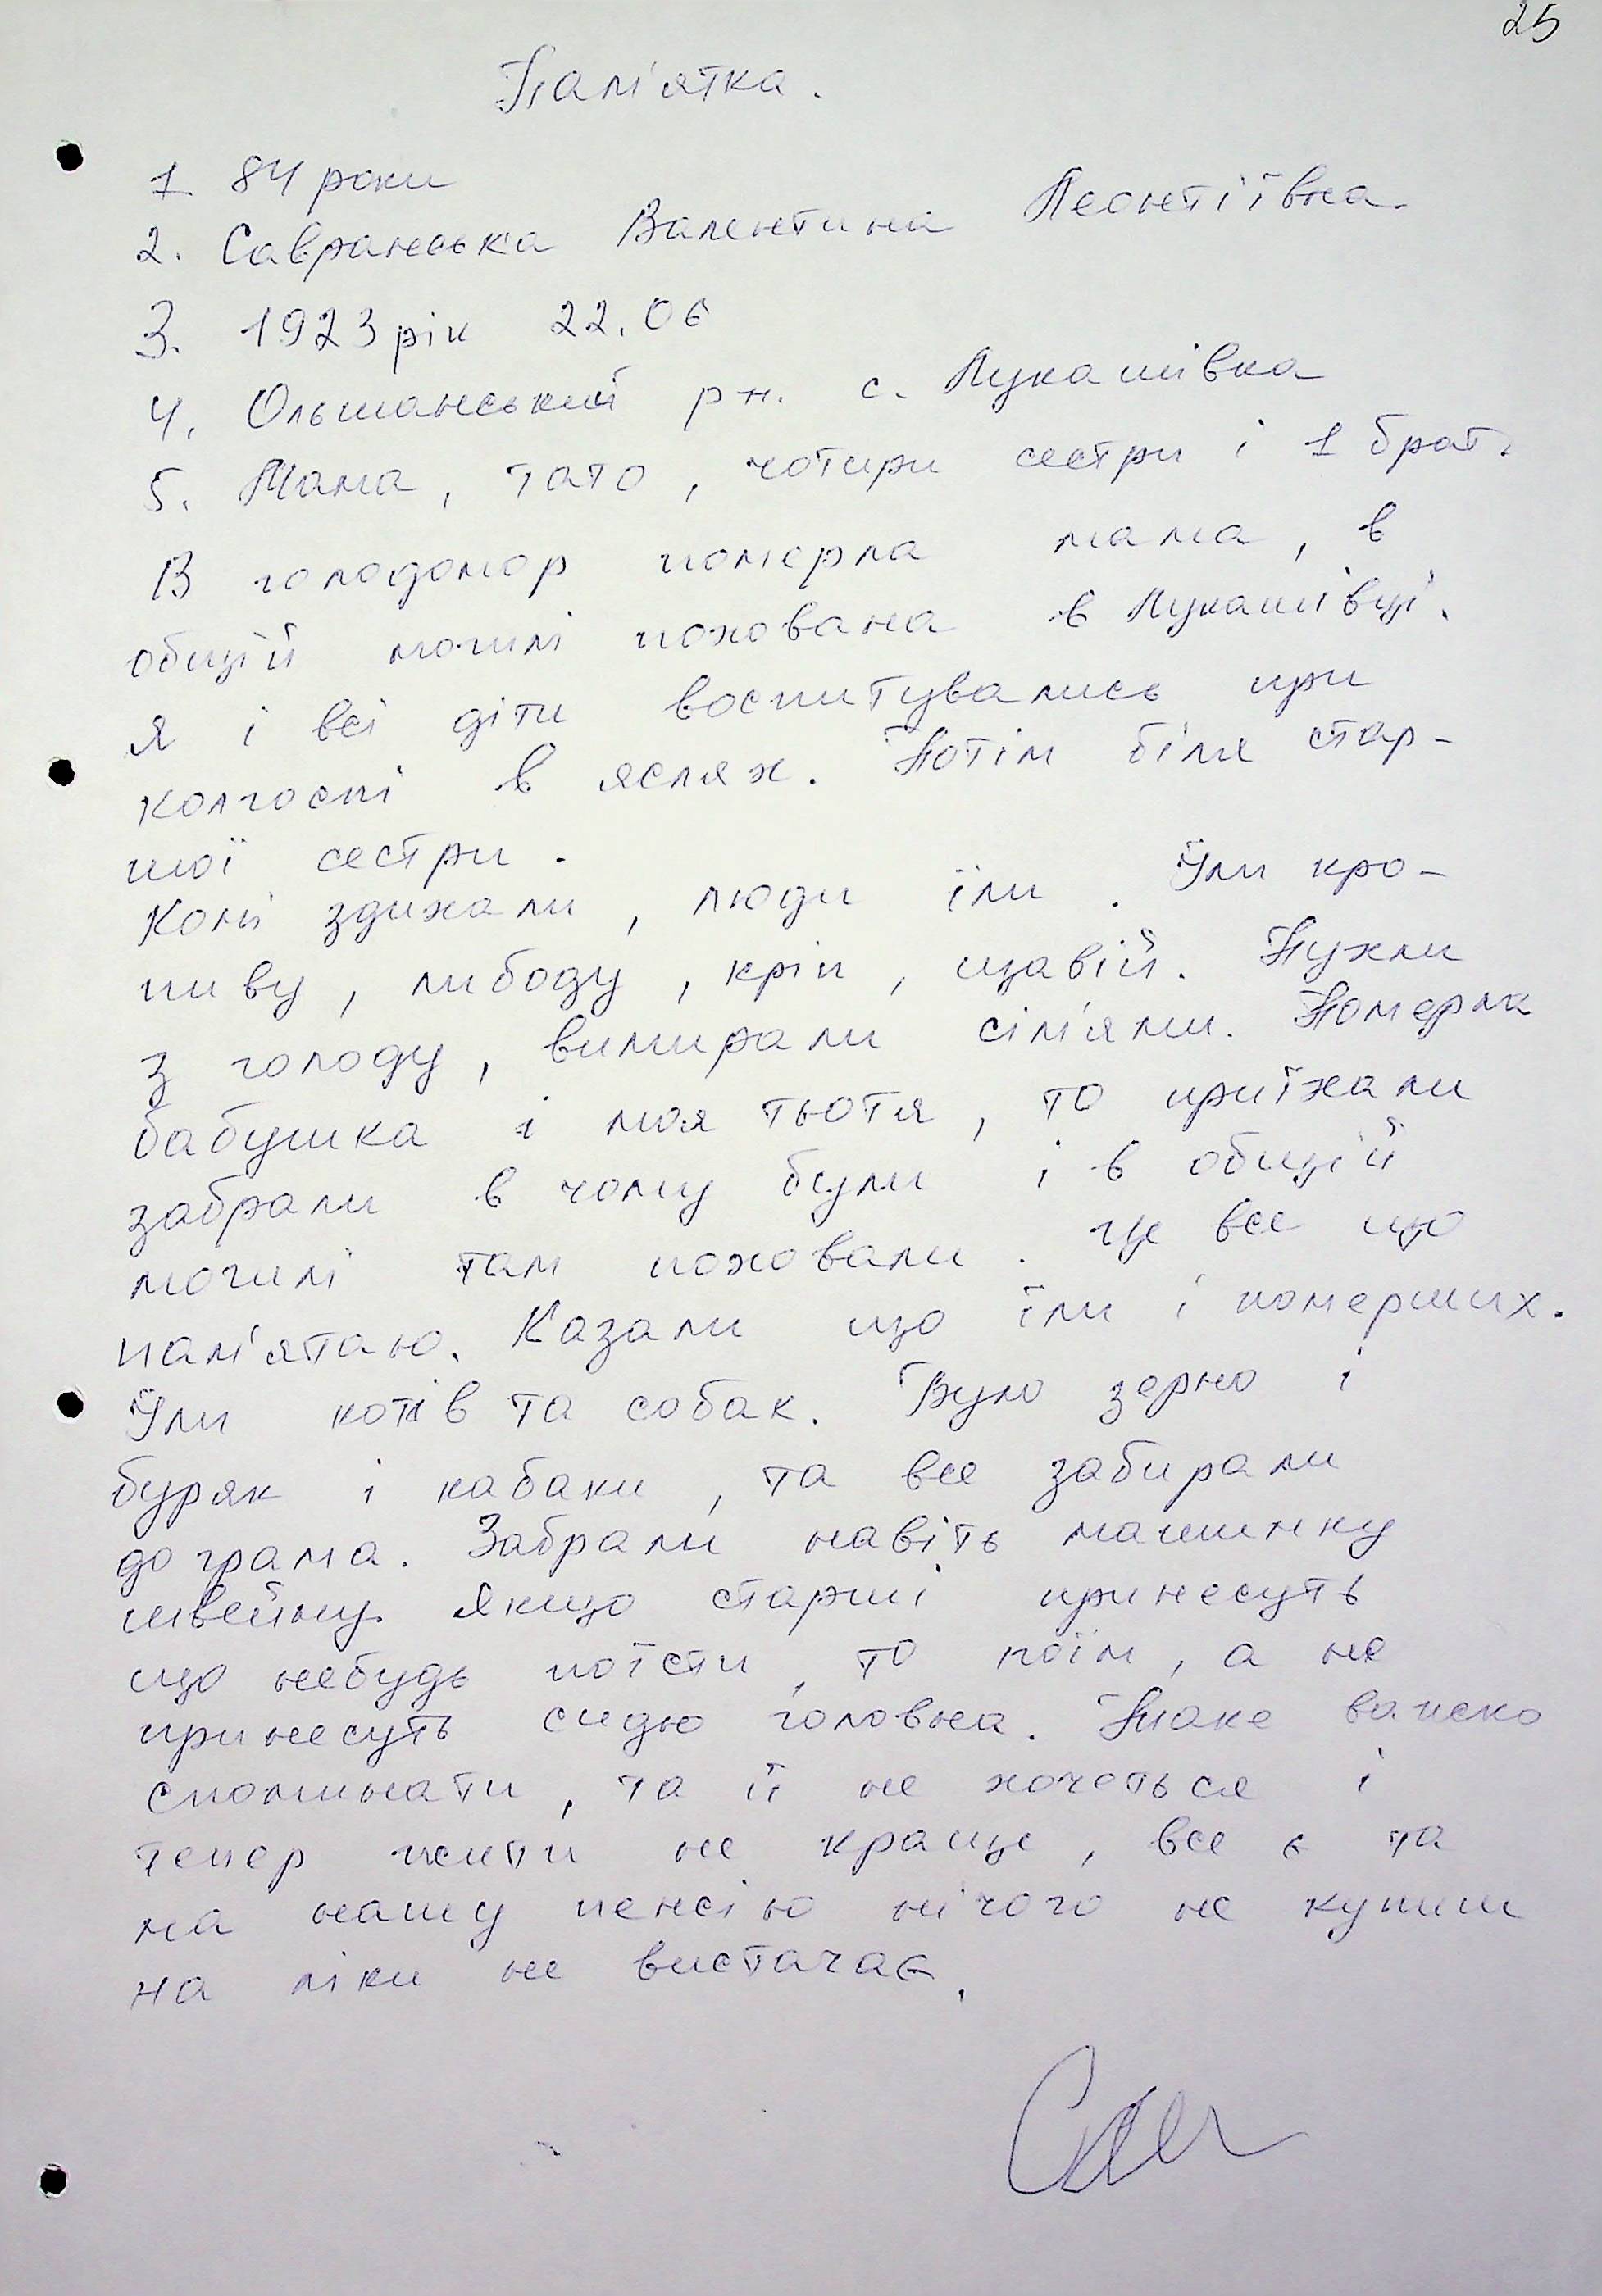 25
Пам'ятка.
1. 84 роки
2. Савранська Валентина Леонтіївна.
3. 1923 рік 22.06
4. Ольшанський р-н. с. Лукашівка
5. Мама, тато, чотири сестри і 1 брат.
В голодомор померла мама, в
общій могилі похована в Лукашівці.
Я і всі діти воспитувались при
колгоспі в яслях. Потім біля стар-
шої сестри.
Коні здихали, люди їли. Їли кро-
пиву, либоду, кріп, щавій. Пухли
з голоду, вимирали сім'ями. Померла
бабушка і моя тьотя, то приїхали
забрали в чому були і в общій
могилі там поховали. Це все що
пам'ятаю. Казали що їли і померших.
Їли котів та собак. Було зерно і
буряк і кабаки, та все забирали
до грама. Забрали навіть машинку
швейну. Якщо старші принесуть
що небудь поїсти, то поїм, а не
принесуть сидю головна. Тяжке важко
споминати, та й не хочеться і
тепер жити не краще, все є та
на нашу пенсію нічого не купиш
на ліки не вистачає.